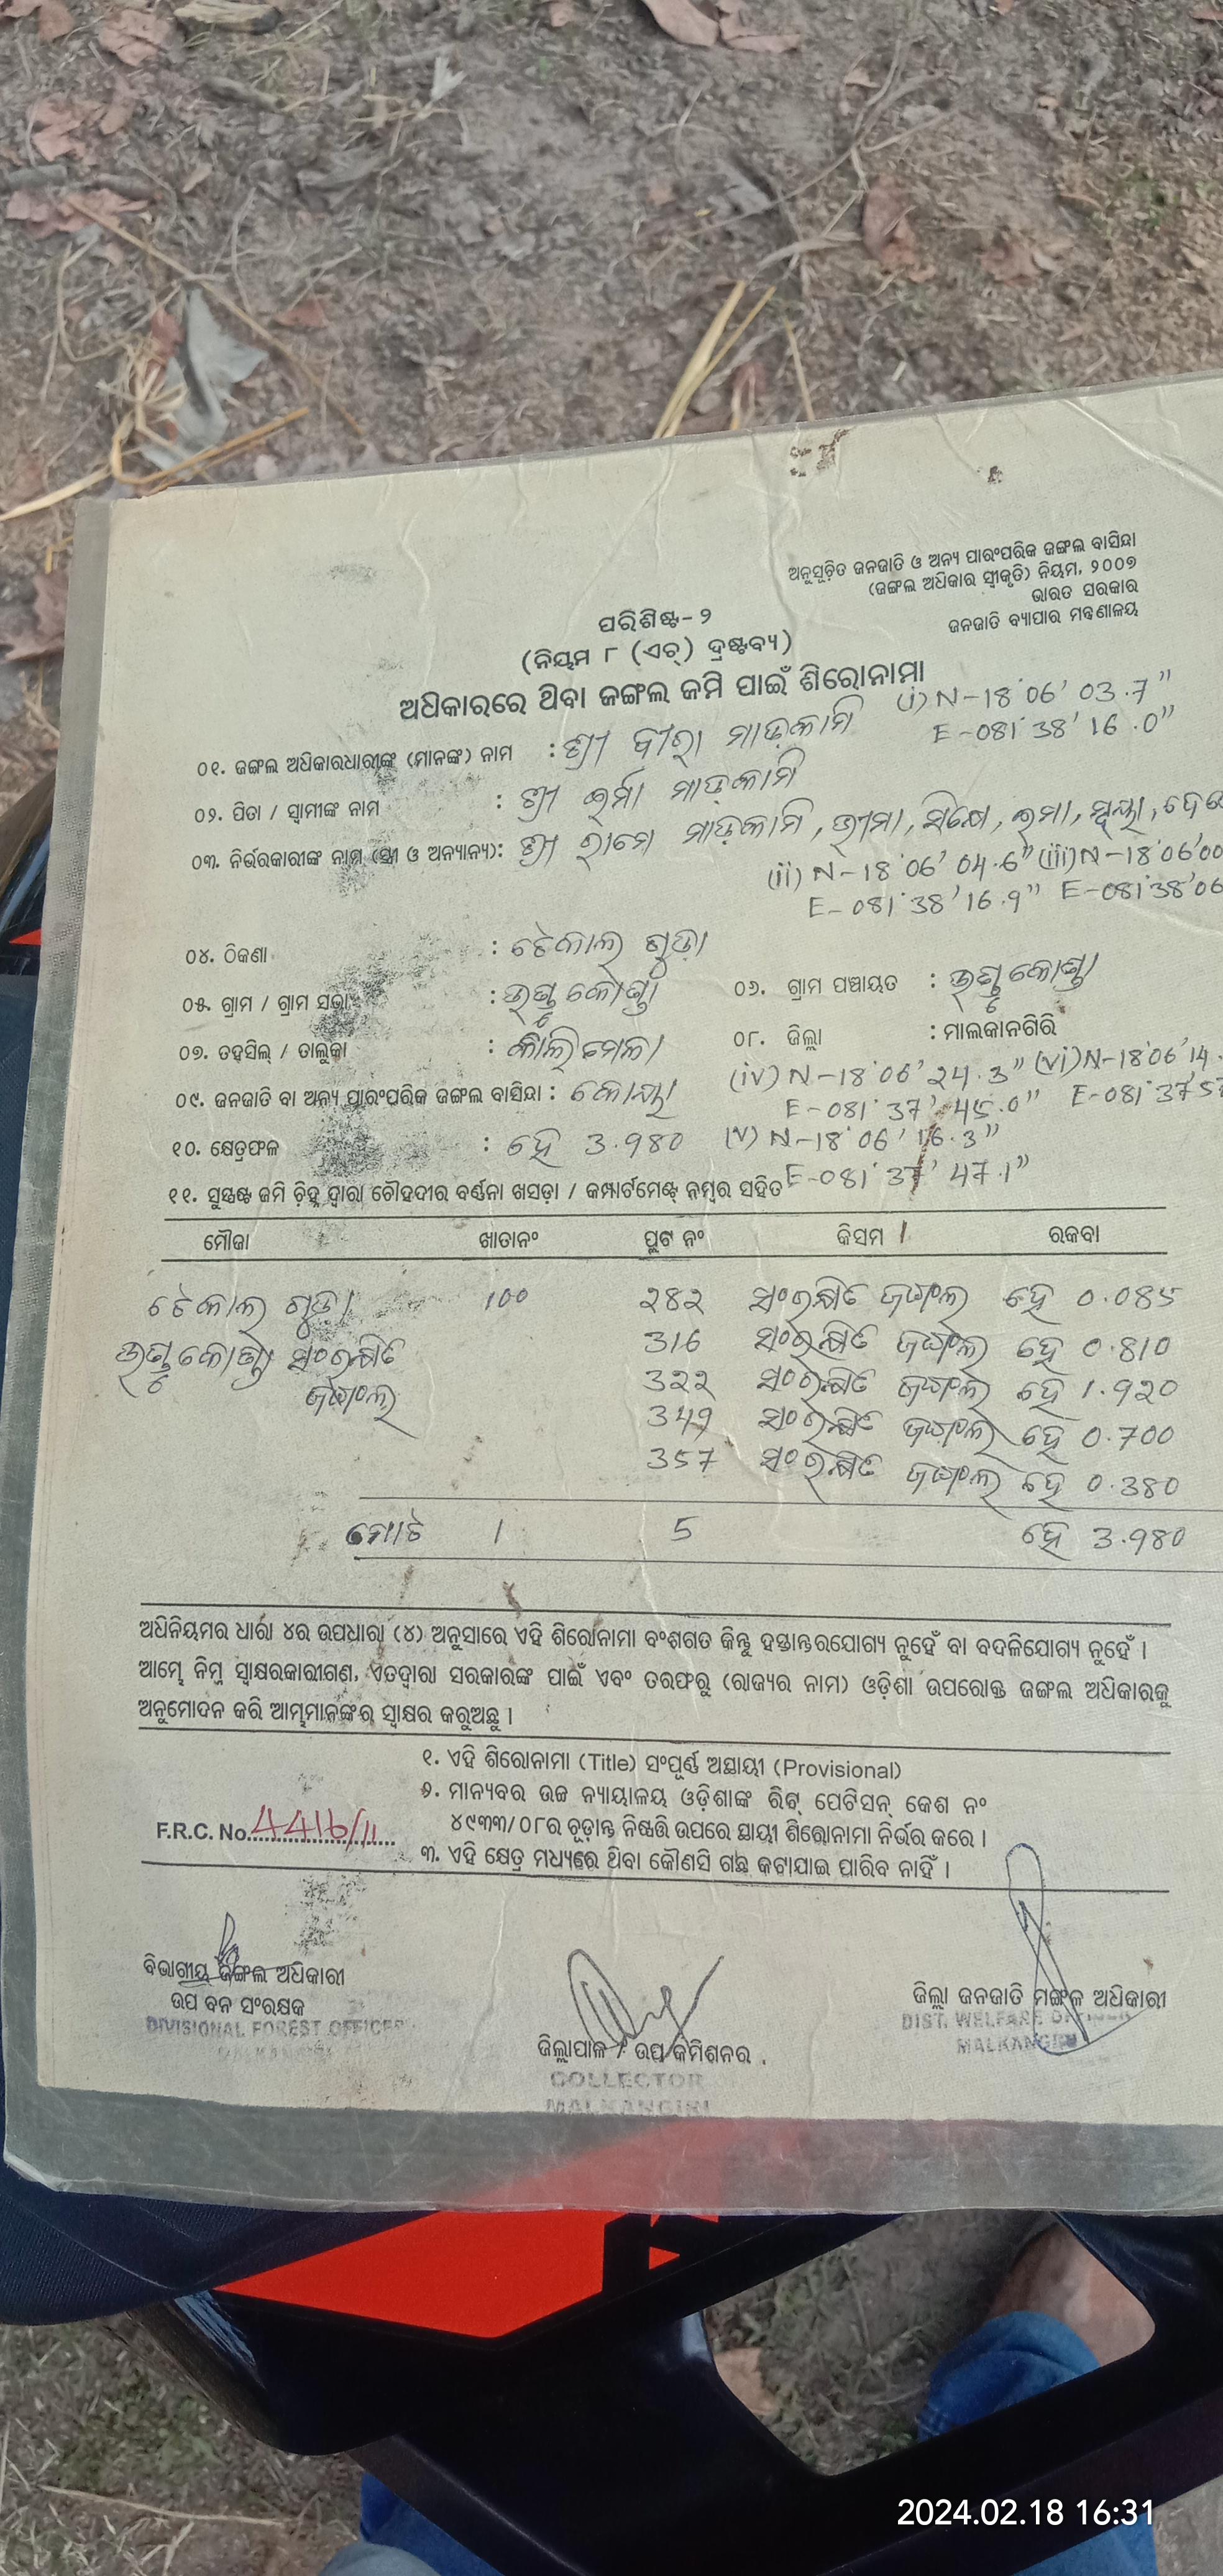 ଅନୁସୂଚିତ ଜନଜାତି ଓ ଅନ୍ୟ ପାରଂପରିକ ଜଙ୍ଗଲ ବାସିନ୍ଦା
(ଜଙ୍ଗଲ ଅଧିକାର ସ୍ୱୀକୃତି) ନିୟମ, ୨୦୦୭
ଭାରତ ସରକାର
ଜନଜାତି ବ୍ୟାପାର ମନ୍ତ୍ରଣାଳୟ
ପରିଶିଷ୍ଟ-୨
(ନିୟମ ୮ (ଏଚ୍) ଦ୍ରଷ୍ଟବ୍ୟ)
ଅଧିକାରରେ ଥିବା ଜଙ୍ଗଲ ଜମି ପାଇଁ ଶିରୋନାମା
(i) N-18°06' 03.7"
E-081°38' 16.0"
୦୧. ଜଙ୍ଗଲ ଅଧିକାରଧାରୀଙ୍କ (ମାନଙ୍କ) ନାମ : ଶ୍ରୀ ବୀରା ମାଡ଼କାମି
୦୨. ପିତା / ସ୍ୱାମୀଙ୍କ ନାମ : ଶ୍ରୀ ଇର୍ମା ମାଡ଼କାମି
୦୩. ନିର୍ଭରକାରୀଙ୍କ ନାମ (ସ୍ତ୍ରୀ ଓ ଅନ୍ୟାନ୍ୟ): ଶ୍ରୀ ରାମେ ମାଡ଼କାମି, ଭୀମା, ଇମା,
(ii) N-18°06' 04.6" (iii) N-18°06'00
E-081°38'16.9" E-081°38'06
୦୪. ଠିକଣା : ଟେକାଲ ଗୁଡ଼ା
୦୫. ଗ୍ରାମ / ଗ୍ରାମ ସଭା : ଉଣ୍ଡୁକୋଣ୍ଡା ୦୬. ଗ୍ରାମ ପଞ୍ଚାୟତ : ଉଣ୍ଡୁକୋଣ୍ଡା
୦୭. ତହସିଲ୍ / ତାଲୁକା : କାଲିମେଳା ୦୮. ଜିଲ୍ଲା : ମାଲକାନଗିରି
(iv) N-18°06' 24.3" (vi) N-18°06'14.
୦୯. ଜନଜାତି ବା ଅନ୍ୟ ପାରଂପରିକ ଜଙ୍ଗଲ ବାସିନ୍ଦା : କୋୟା
E-081°37' 45.0" E-081°37'57
୧୦. କ୍ଷେତ୍ରଫଳ : ହେ 3.980 (v) N-18°06' 16.3"
E-081°37' 47.1"
୧୧. ସୁସ୍ପଷ୍ଟ ଜମି ଚିହ୍ନ ଦ୍ୱାରା ଚୌହଦୀର ବର୍ଣ୍ଣନା ଖସଡ଼ା / କମ୍ପାର୍ଟମେଣ୍ଟ୍ ନମ୍ବର ସହିତ
ମୌଜା ଖାତାନଂ ପ୍ଲଟ ନଂ କିସମ ରକବା
ଟେକାଲ ଗୁଡ଼ା 100 282 ସଂରକ୍ଷିତ ଜଙ୍ଗଲ ହେ 0.085
ଉଣ୍ଡୁକୋଣ୍ଡା ସଂରକ୍ଷିତ 316 ସଂରକ୍ଷିତ ଜଙ୍ଗଲ ହେ 0.810
ଜଙ୍ଗଲ 322 ସଂରକ୍ଷିତ ଜଙ୍ଗଲ ହେ 1.920
349 ସଂରକ୍ଷିତ ଜଙ୍ଗଲ ହେ 0.700
357 ସଂରକ୍ଷିତ ଜଙ୍ଗଲ ହେ 0.380
ମୋଟ 1 5 ହେ 3.980
ଅଧିନିୟମର ଧାରା ୪ର ଉପଧାରା (୪) ଅନୁସାରେ ଏହି ଶିରୋନାମା ବଂଶଗତ କିନ୍ତୁ ହସ୍ତାନ୍ତରଯୋଗ୍ୟ ନୁହେଁ ବା ବଦଳିଯୋଗ୍ୟ ନୁହେଁ ।
ଆମ୍ଭେ ନିମ୍ନ ସ୍ୱାକ୍ଷରକାରୀଗଣ, ଏତଦ୍ୱାରା ସରକାରଙ୍କ ପାଇଁ ଏବଂ ତରଫରୁ (ରାଜ୍ୟର ନାମ) ଓଡ଼ିଶା ଉପରୋକ୍ତ ଜଙ୍ଗଲ ଅଧିକାରକୁ
ଅନୁମୋଦନ କରି ଆମ୍ଭମାନଙ୍କର ସ୍ୱାକ୍ଷର କରୁଅଛୁ ।
୧. ଏହି ଶିରୋନାମା (Title) ସଂପୂର୍ଣ୍ଣ ଅସ୍ଥାୟୀ (Provisional)
୨. ମାନ୍ୟବର ଉଚ୍ଚ ନ୍ୟାୟାଳୟ ଓଡ଼ିଶାଙ୍କ ରିଟ୍ ପେଟିସନ୍ କେଶ ନଂ
୪୯୩୩/୦୮ର ଚୂଡ଼ାନ୍ତ ନିଷ୍ପତ୍ତି ଉପରେ ସ୍ଥାୟୀ ଶିରୋନାମା ନିର୍ଭର କରେ ।
F.R.C. No. 4416/11
୩. ଏହି କ୍ଷେତ୍ର ମଧ୍ୟରେ ଥିବା କୌଣସି ଗଛ କଟାଯାଇ ପାରିବ ନାହିଁ ।
ବିଭାଗୀୟ ଜଙ୍ଗଲ ଅଧିକାରୀ
ଉପ ବନ ସଂରକ୍ଷକ
DIVISIONAL FOREST OFFICER
MALKANGIRI
ଜିଲ୍ଲାପାଳ / ଉପ କମିଶନର
COLLECTOR
MALKANGIRI
ଜିଲ୍ଲା ଜନଜାତି ମଙ୍ଗଳ ଅଧିକାରୀ
DIST. WELFARE OFFICER
MALKANGIRI
2024.02.18 16:31